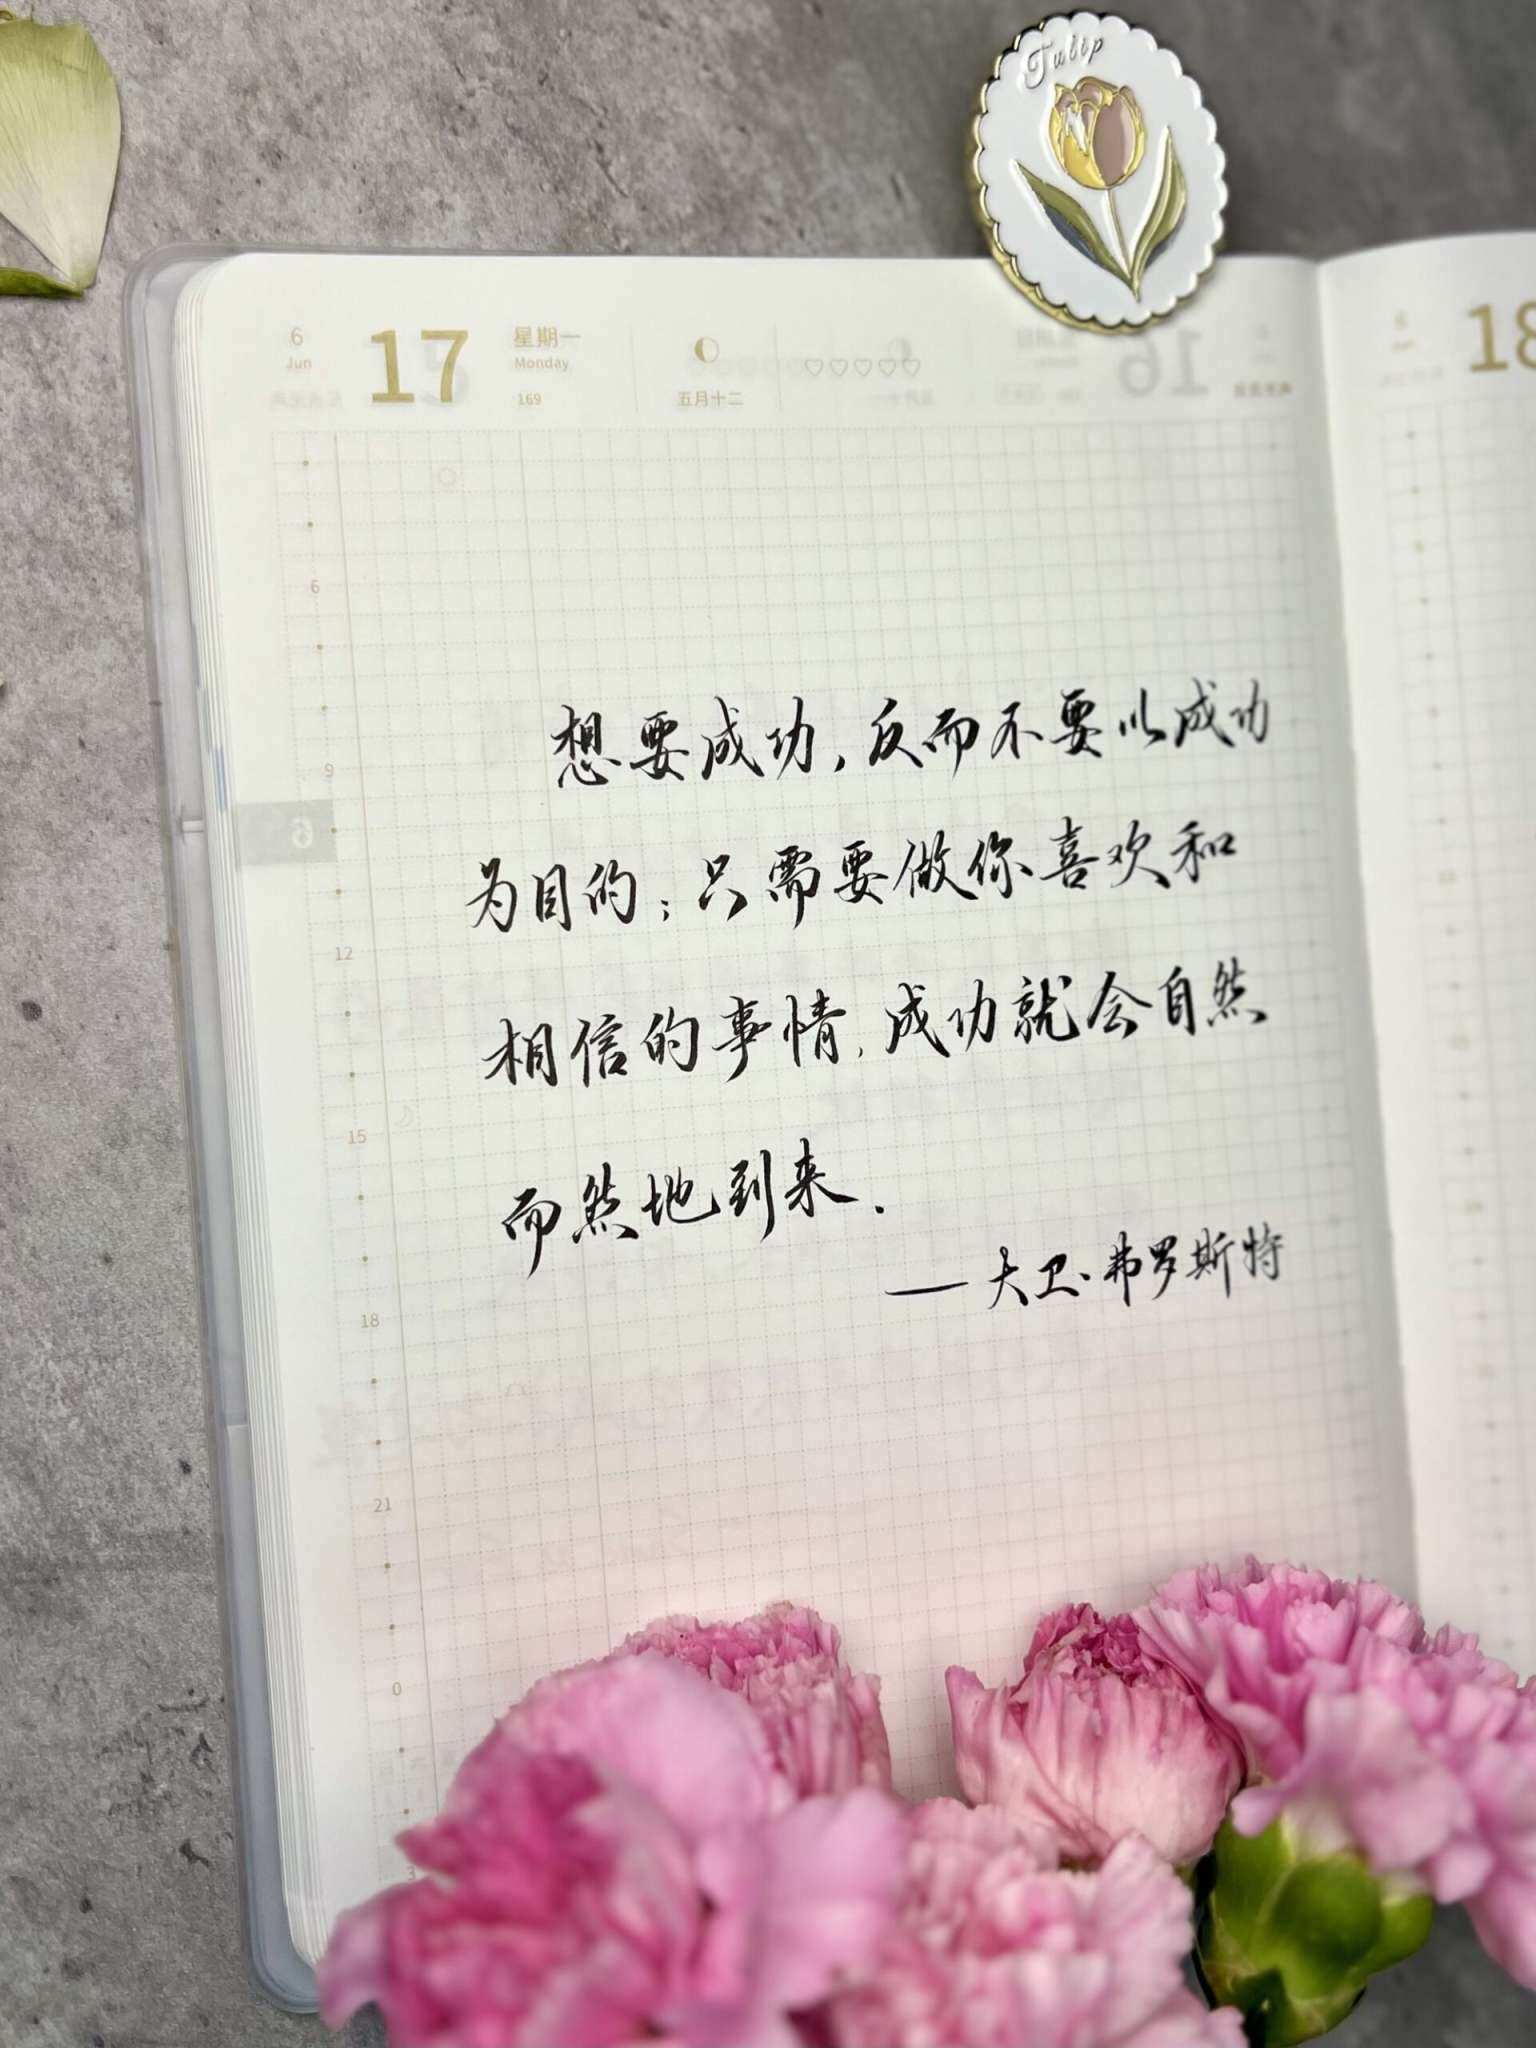 Tulip
6
Jun
17
星期一
Monday
169
五月十二
16
6
18
6
9
12
15
18
21
0
3
想要成功,反而不要以成功
为目的;只需要做你喜欢和
相信的事情,成功就会自然
而然地到来.
—大卫·弗罗斯特